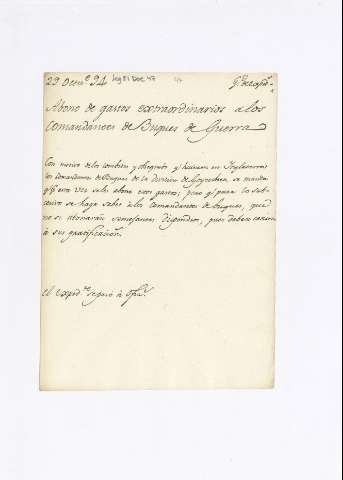 29 Dicre. 94 Leg 51 Doc 47
Gs. de expedn.
Abono de gastos extraordinarios a los
Comandantes de Buques de Guerra
Con motivo de los combites y obsequios q. hicieron en Ynglaterra
los comandantes de Buques de la division de Goycochea, se manda
q. p. esta vez se les abone estos gastos; pero q. para lo sub-
cesivo se haga saber a los comandantes de buques, que
no se abonarán semejantes dispendios, pues deben ceñirse
à sus gratificacions.
el expedte. se pasó à